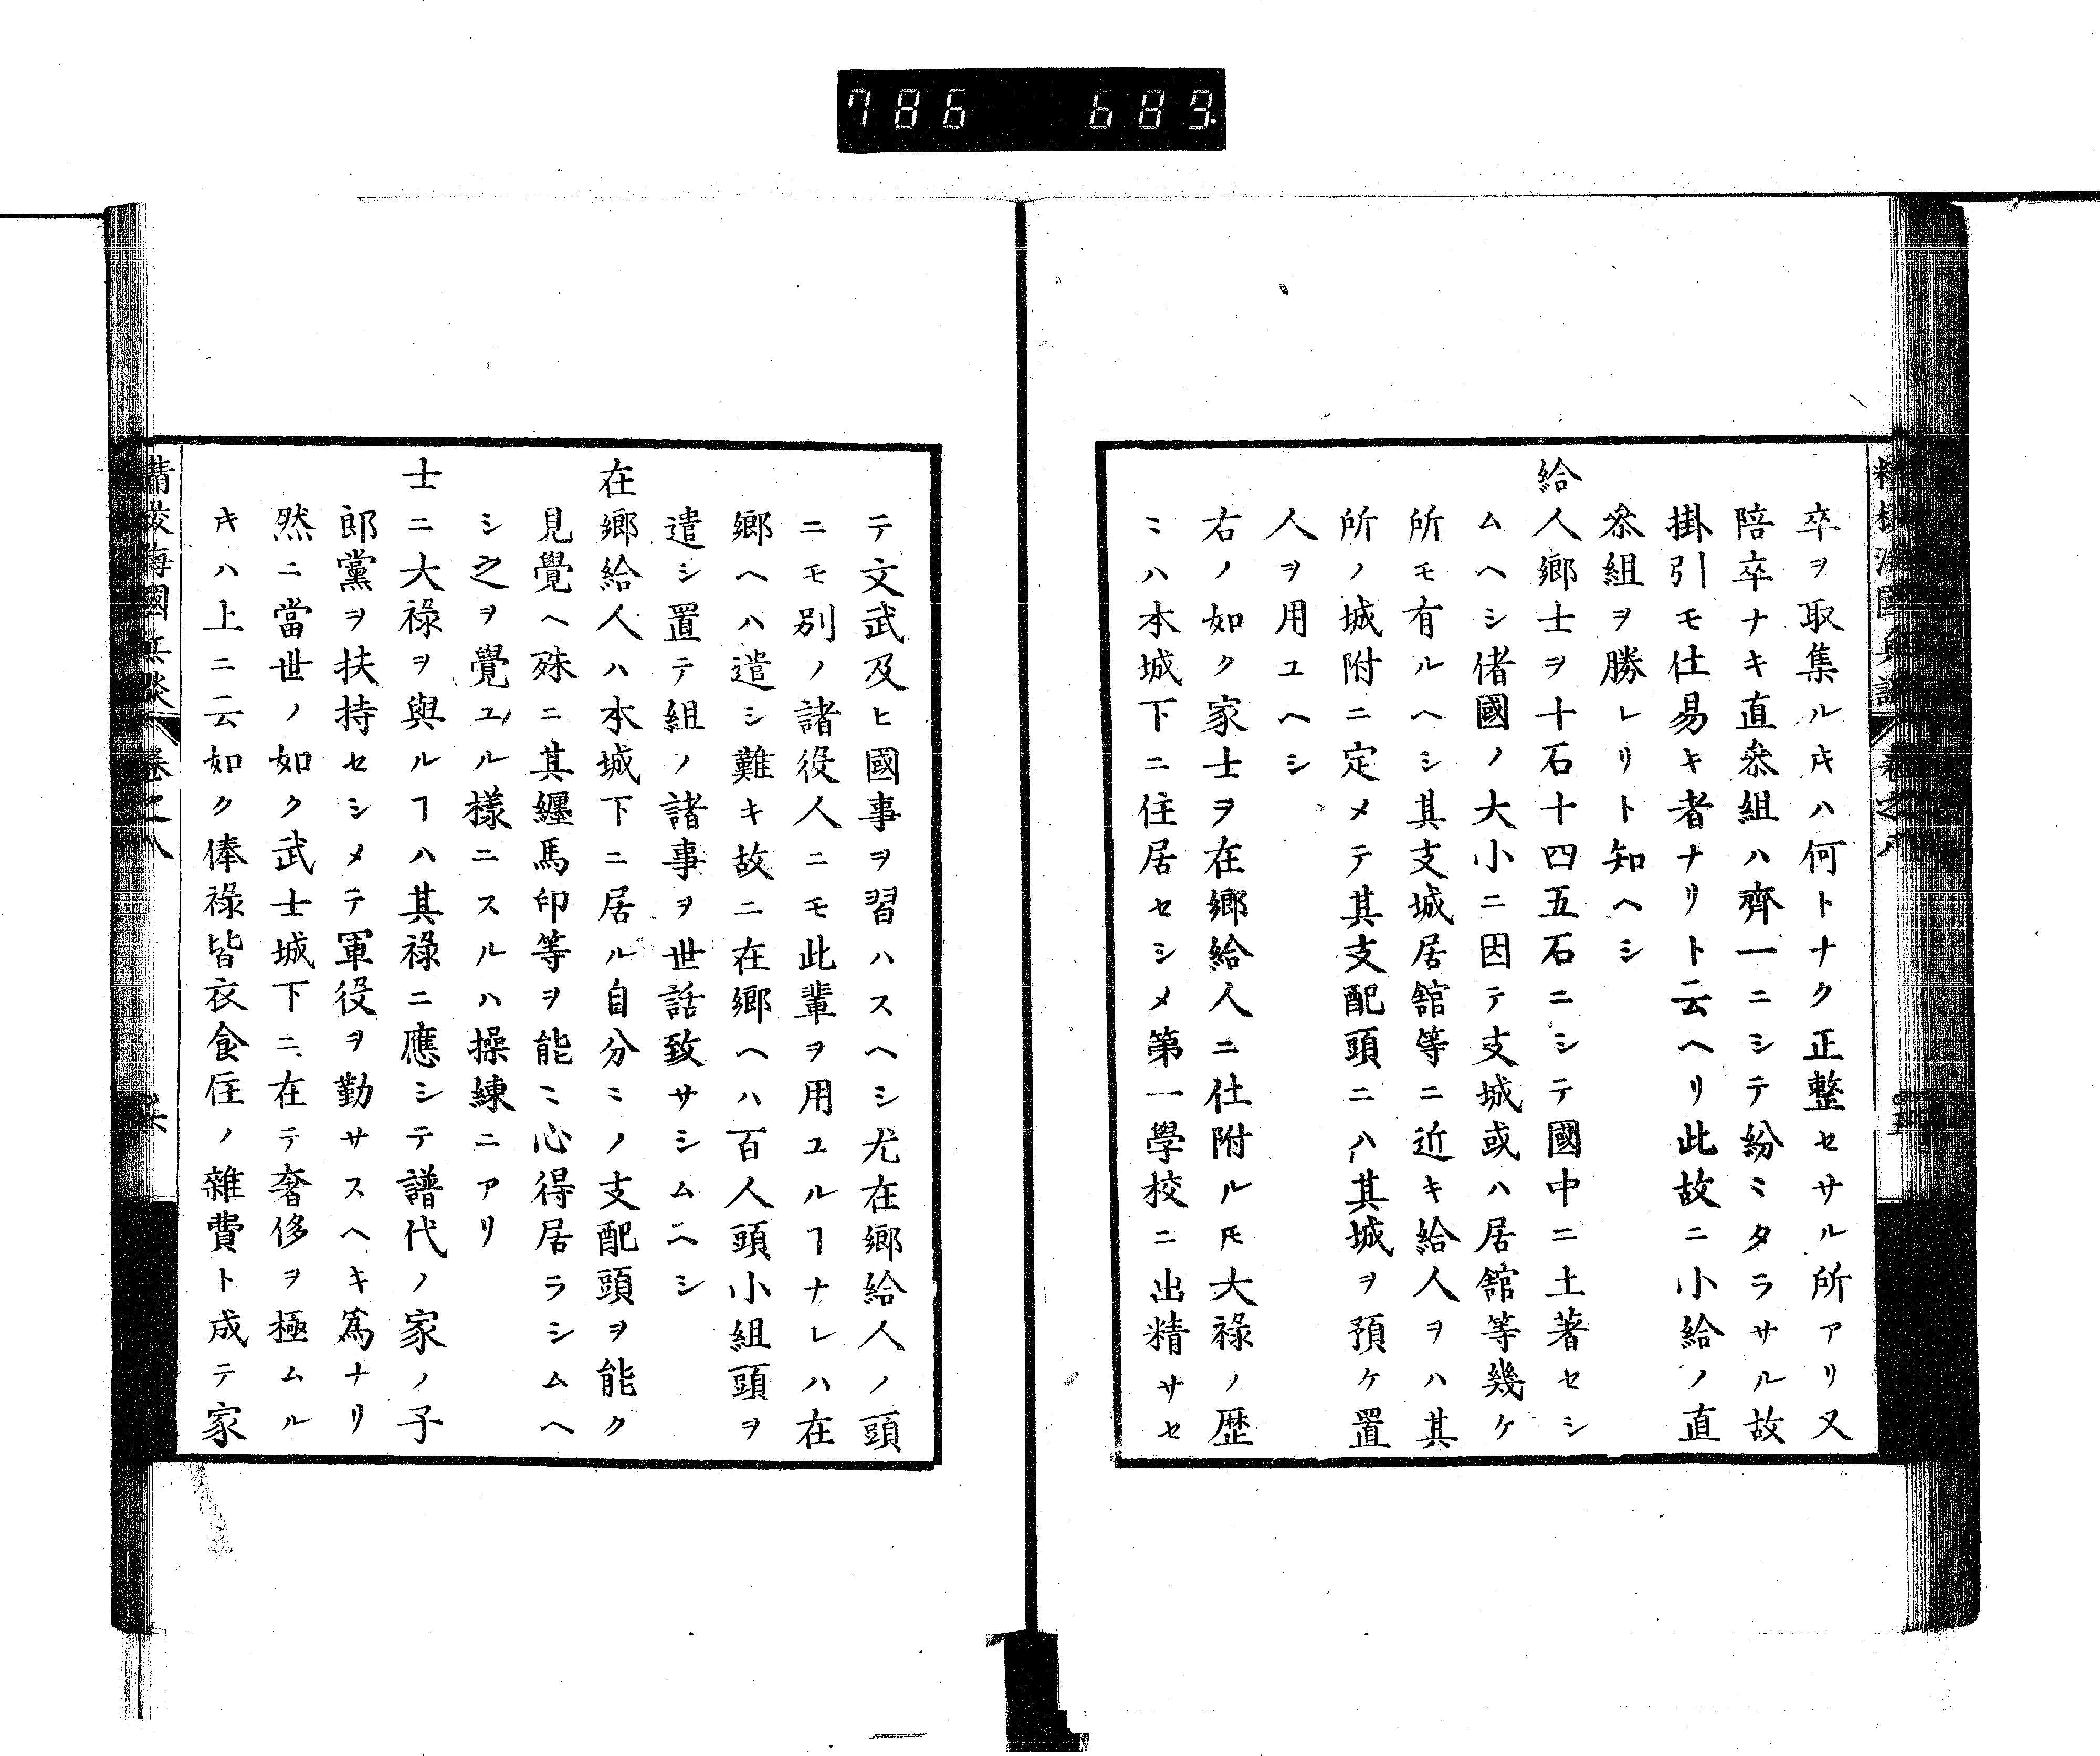 786 683
卒ヲ取集ルキハ何トナク正整セサル所アリ又
陪卒ナキ直叅組ハ齊一ニシテ紛ミタラサル故
掛引モ仕易キ者ナリト云ヘリ此故ニ小給ノ直
叅組ヲ勝レリト知ヘシ
給人郷士ヲ十石十四五石ニシテ國中ニ土著セシ
ムヘシ偖國ノ大小ニ因テ支城或ハ居舘等幾ケ
所モ有ルヘシ其支城居舘等ニ近キ給人ヲハ其
所ノ城附ニ定メテ其支配頭ニハ其城ヲ預ケ置
人ヲ用ユヘシ
右ノ如ク家士ヲ在郷給人ニ仕附ルモ大祿ノ歴
ミハ本城下ニ住居セシメ第一學校ニ出精サセ
テ文武及ヒ國事ヲ習ハスヘシ尤在郷給人ノ頭
ニモ別ノ諸役人ニモ此輩ヲ用ユルヿナレハ在
郷ヘハ遣シ難キ故ニ在郷ヘハ百人頭小組頭ヲ
遣シ置テ組ノ諸事ヲ世話致サシムヘシ
在郷給人ハ本城下ニ居ル自分ミノ支配頭ヲ能ク
見覺ヘ殊ニ其纒馬印等ヲ能ミ心得居ラシムヘ
シ之ヲ覺ユル樣ニスルハ操練ニアリ
士ニ大祿ヲ與ルヿハ其祿ニ應シテ譜代ノ家ノ子
郎黨ヲ扶持セシメテ軍役ヲ勤サスヘキ為ナリ
然ニ當世ノ如ク武士城下ニ在テ奢侈ヲ極ムル
キハ上ニ云如ク俸祿皆衣食住ノ雜費ト成テ家
海國兵談 卷之八